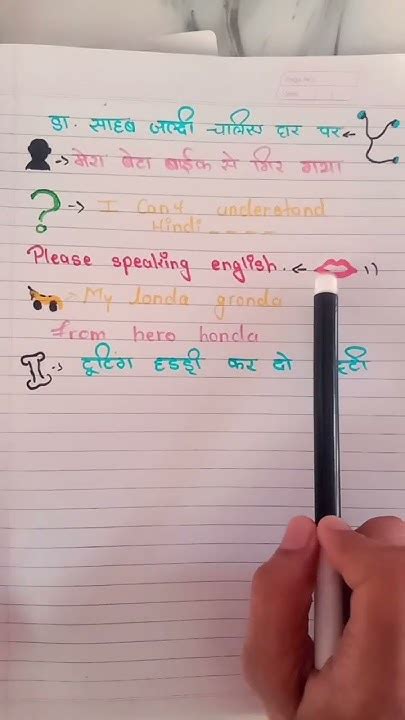 डा. साहब जल्दी चलिए द्वार पर
मेरा बेटा बाईक से गिर गया
I Can't understand
Hindi ----
Please speaking english.
My londa gronda
from hero honda
टूटिंग हडड्डी कर दो